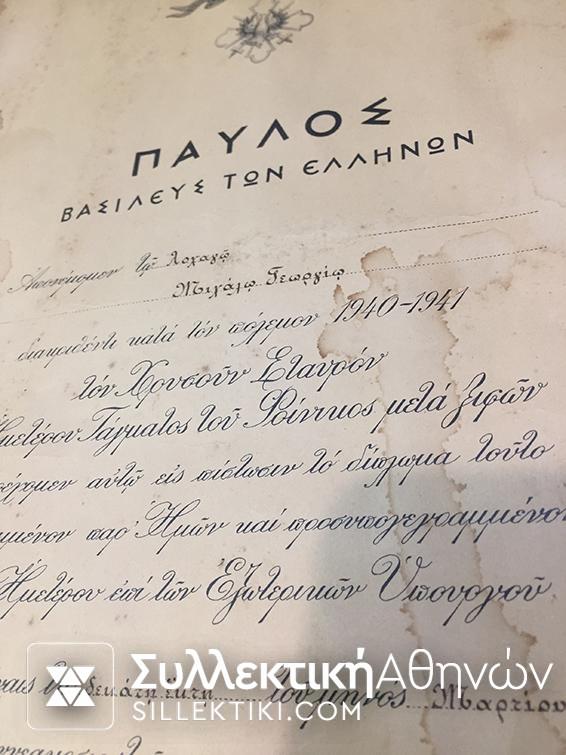 ΠΑΥΛΟΣ
ΒΑΣΙΛΕΥΣ ΤΩΝ ΕΛΛΗΝΩΝ
Ἀπονέμομεν τῷ Λοχαγῷ
Μιχάλῳ Γεωργίῳ
διακριθέντι κατά τόν πόλεμον 1940-1941
τόν Χρυσοῦν Σταυρόν
Ἡμετέρου Τάγματος τοῦ Φοίνικος μετά ξιφῶν
αὐτῷ εἰς πίστωσιν τό δίπλωμα τοῦτο
παρ' Ἡμῶν καί προσυπογεγραμμένον
Ἡμετέρου ἐπί τῶν Ἐξωτερικῶν Ὑπουργοῦ
δεκάτῃ ἕκτῃ τοῦ μηνός Μαρτίου
Συλλεκτική Αθηνών
SILLEKTIKI.COM